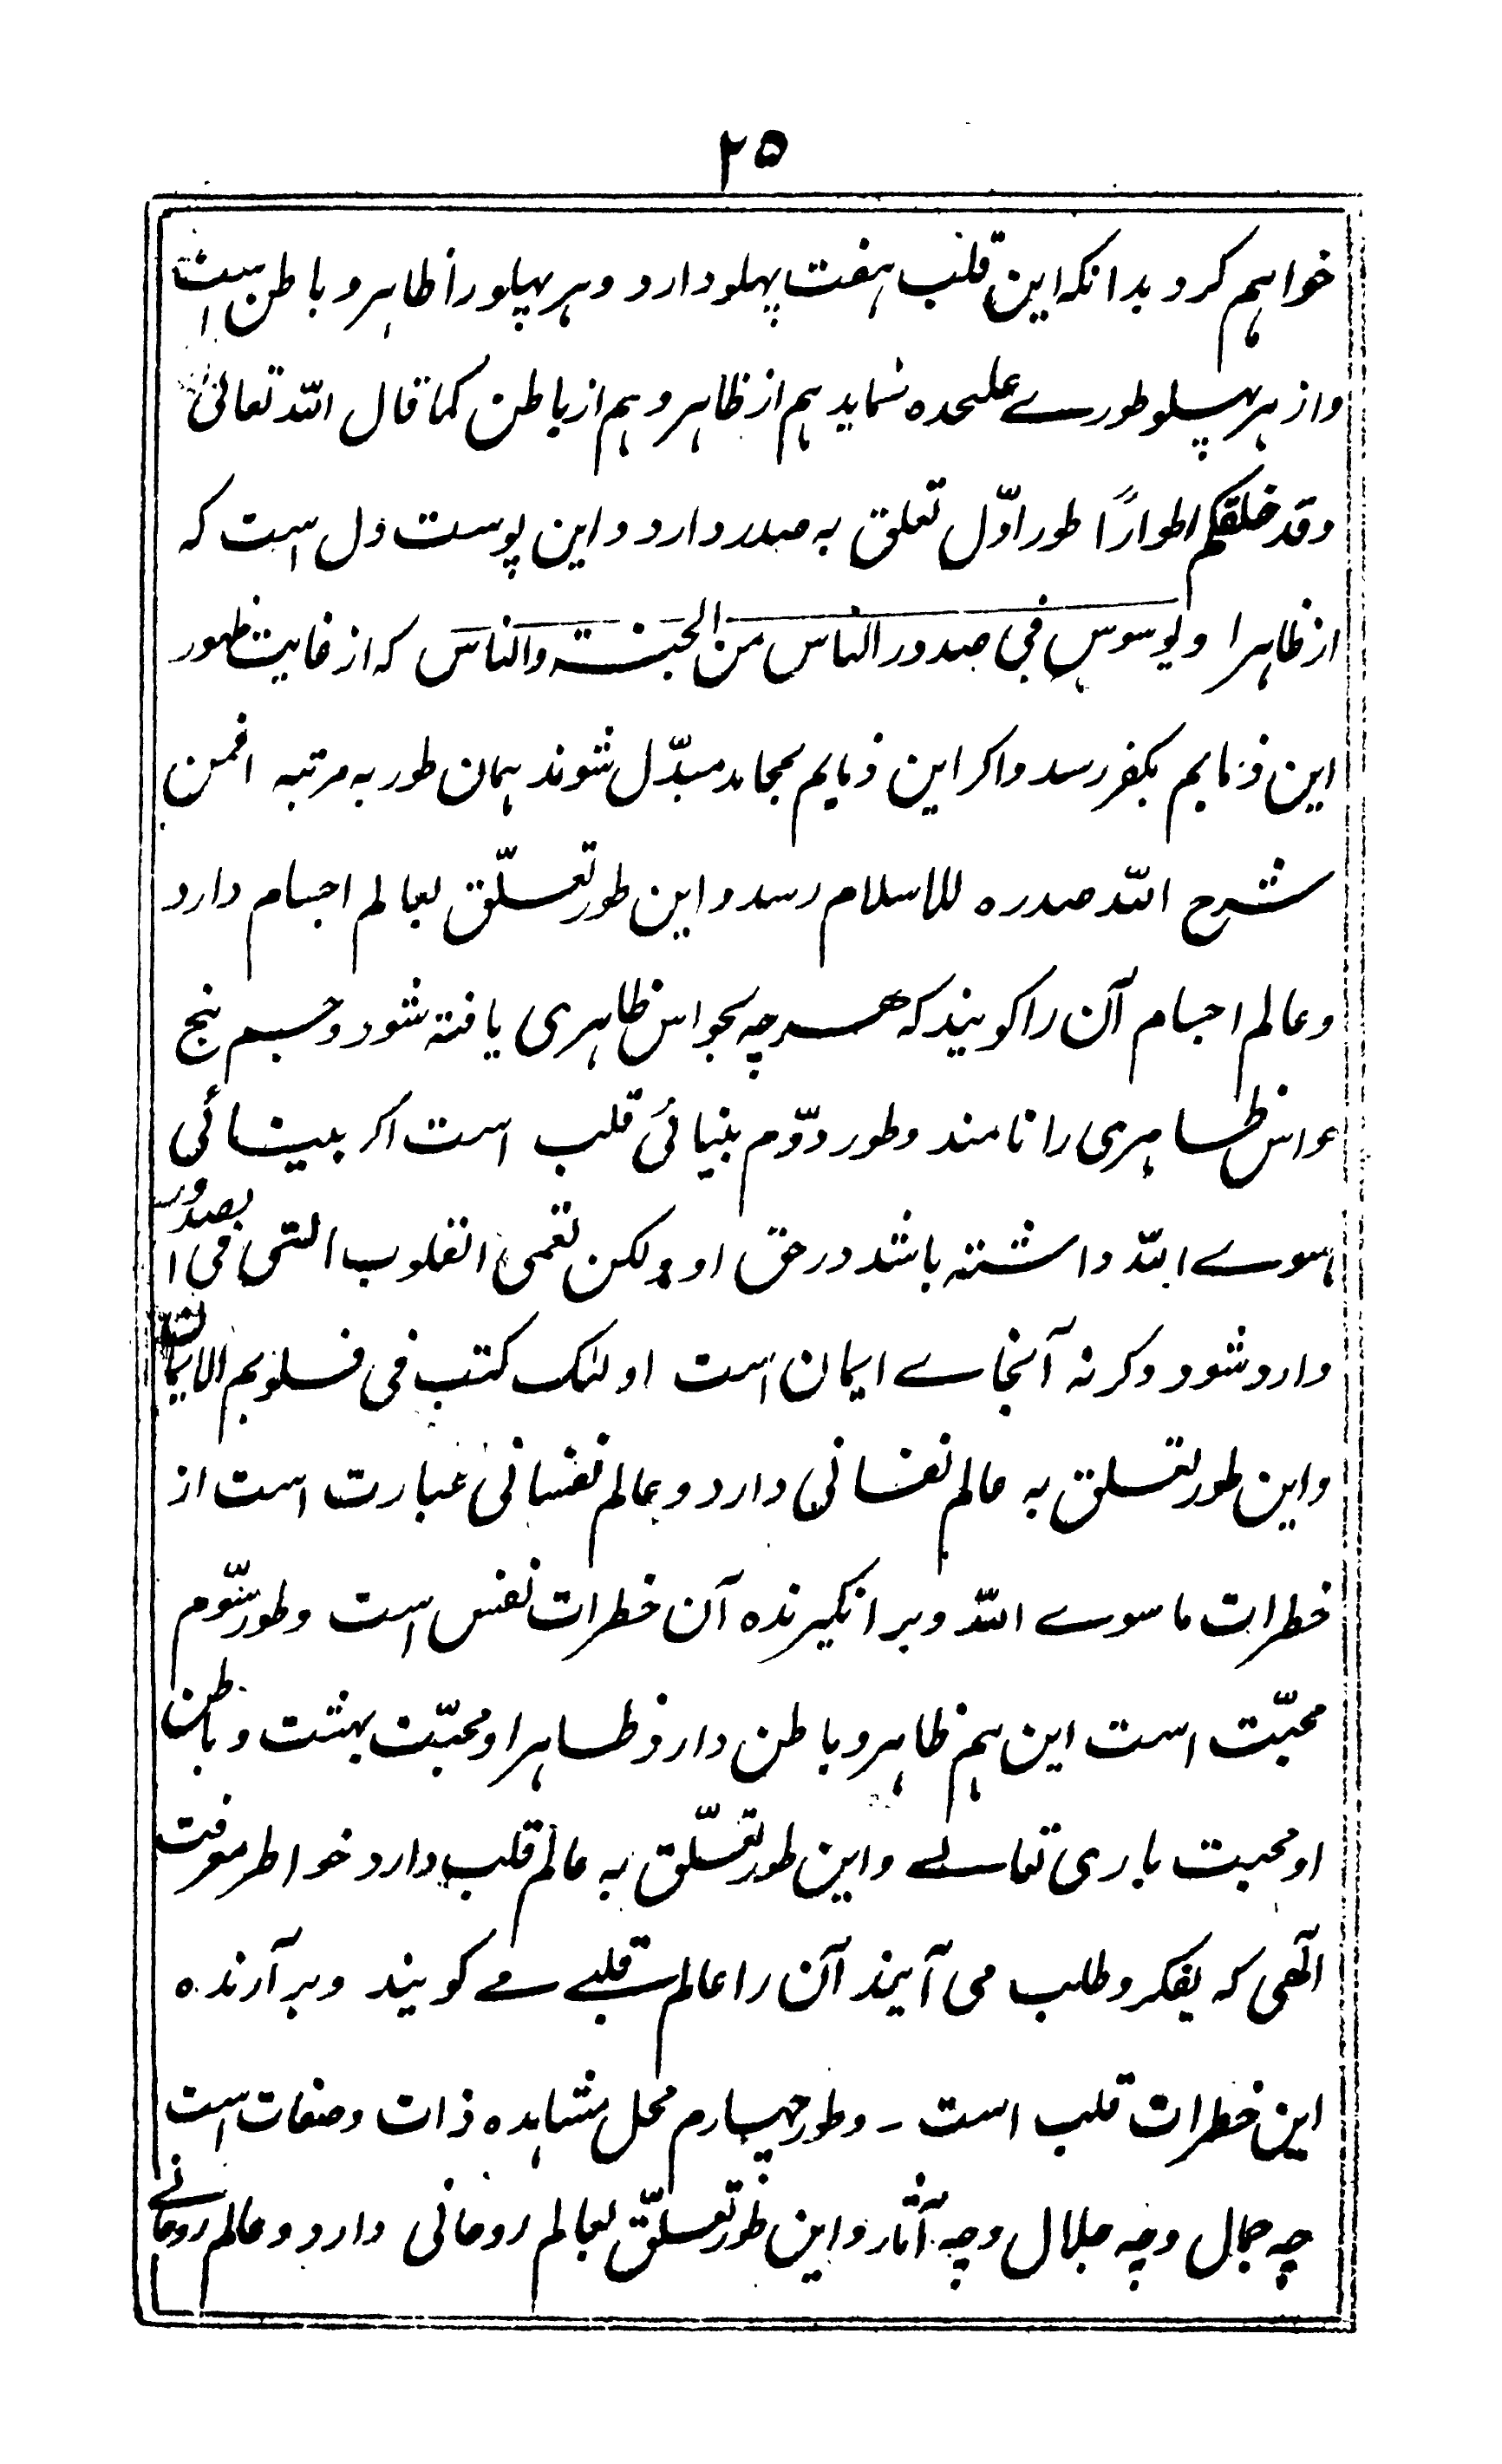 ۲۵
خواہم کرد بدانکہ این قلب ہفت پہلو دارد و ہر پہلو را ظاہر و باطن است
و از ہر پہلو طورے علیحدہ نماید ہم از ظاہر و ہم از باطن کما قال اللّٰہ تعالیٰ
وقد خلقکم اطوارًا طور اوّل تعلق بہ صدر دارد و این پوست دل است کہ
از ظاہرا و یوسوس فی صدور الناس من الجنۃ والناس کہ از غایت ظہور
این ذمایم بکفر رسد و اکر این ذمایم بمحامد مبدّل شوند ہمان طور بہ مرتبہ افمن
شرح اللّٰہ صدرہ للاسلام رسد و این طور تعلّق بعالم اجسام دارد
و عالم اجسام آن را کویند کہ ہرچہ بحواس ظاہری یافتہ شود و جسم پنج
حواس ظاہری را نامند و طور دوّم بینائی قلب است اکر بینائی
بسوے اللّٰہ داشتہ باشد در حق او ولکن تعمی القلوب التی فی الصدور
وارد شود وکرنہ آنجاے ایمان است اولئک کتب فی قلوبہم الایمان
و این طور تعلق بہ عالم نفسانی دارد و عالم نفسانی عبارت است از
خطرات ماسوے اللّٰہ و بر انکیزندہ آن خطرات نفس است و طور سوّم
محبّت است این ہم ظاہر و باطن دارد ظاہر او محبّت بہشت و باطن
او محبت باری تعالے و این طور تعلّق بہ عالم قلب دارد خواطر معرفت
الٓہی کہ بفکر و طلب می آیند آن را عالم قلبے مے کویند و بر آرندہ
این خطرات قلب است ۔ و طور چہارم محل مشاہدہ ذات و صفات است
چہ جمال و چہ جلال و چہ آثار و این طور تعلّق بعالم روحانی دارد و عالم روحانے